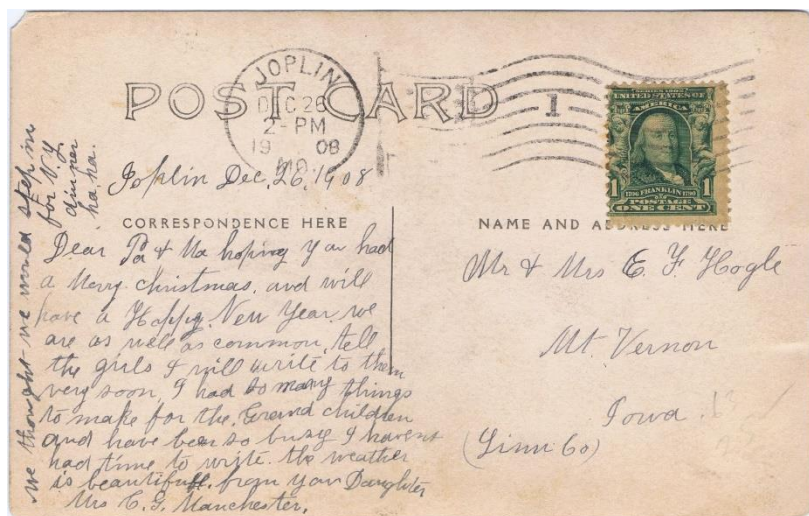 POST CARD
JOPLIN
DEC 26
2-PM
1908
MO.
1
SERIES 1902
UNITED STATES OF
AMERICA
1 1706 FRANKLIN 1790 1
POSTAGE
ONE CENT
Joplin Dec, 26, 1908
CORRESPONDENCE HERE
Dear Pa & Ma hoping you had
a Merry Christmas. and will
have a Happy New Year. we
are as well as common. tell
the girls I will write to them
very soon. I had so many things
to make for the Grand children
and have been so busy I havent
had time to write. the weather
is beautiful. from your Daughter
Mrs C. G. Manchester.
we thought we would step in
for N.Y.
dinner
ha ha.
NAME AND ADDRESS HERE
Mr & Mrs E. F. Hogle
Mt. Vernon
Iowa.
(Linn Co)